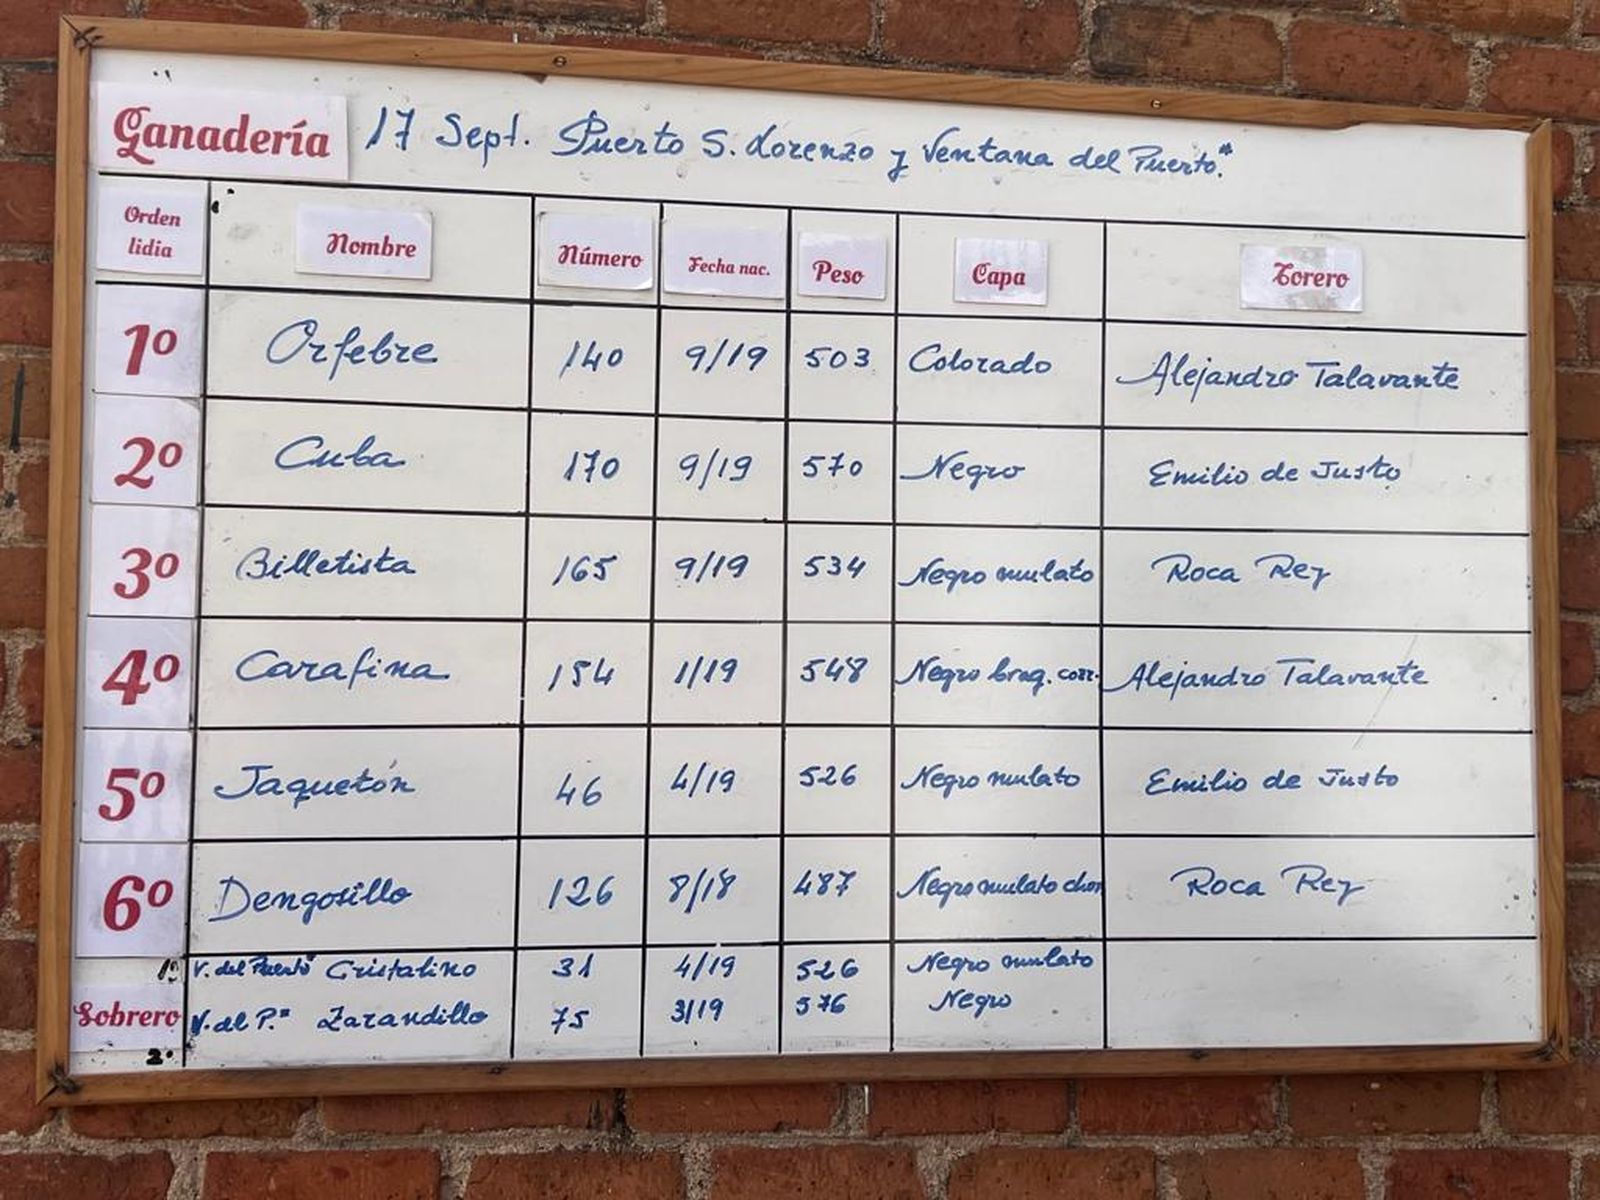 Ganadería 17 Sept. Puerto S. Lorenzo y Ventana del Puerto.*
Orden lidia Nombre Número Fecha nac. Peso Capa Torero
1º Orfebre 140 9/19 503 Colorado Alejandro Talavante
2º Cuba 170 9/19 570 Negro Emilio de Justo
3º Billetista 165 9/19 534 Negro mulato Roca Rey
4º Carafina 154 1/19 548 Negro braq. corr. Alejandro Talavante
5º Jaquetón 46 4/19 526 Negro mulato Emilio de Justo
6º Dengosillo 126 8/18 487 Negro mulato chor Roca Rey
1º V. del Puerto* Cristalino 31 4/19 526 Negro mulato
Sobrero V. del P.* Zarandillo 75 3/19 576 Negro
2º